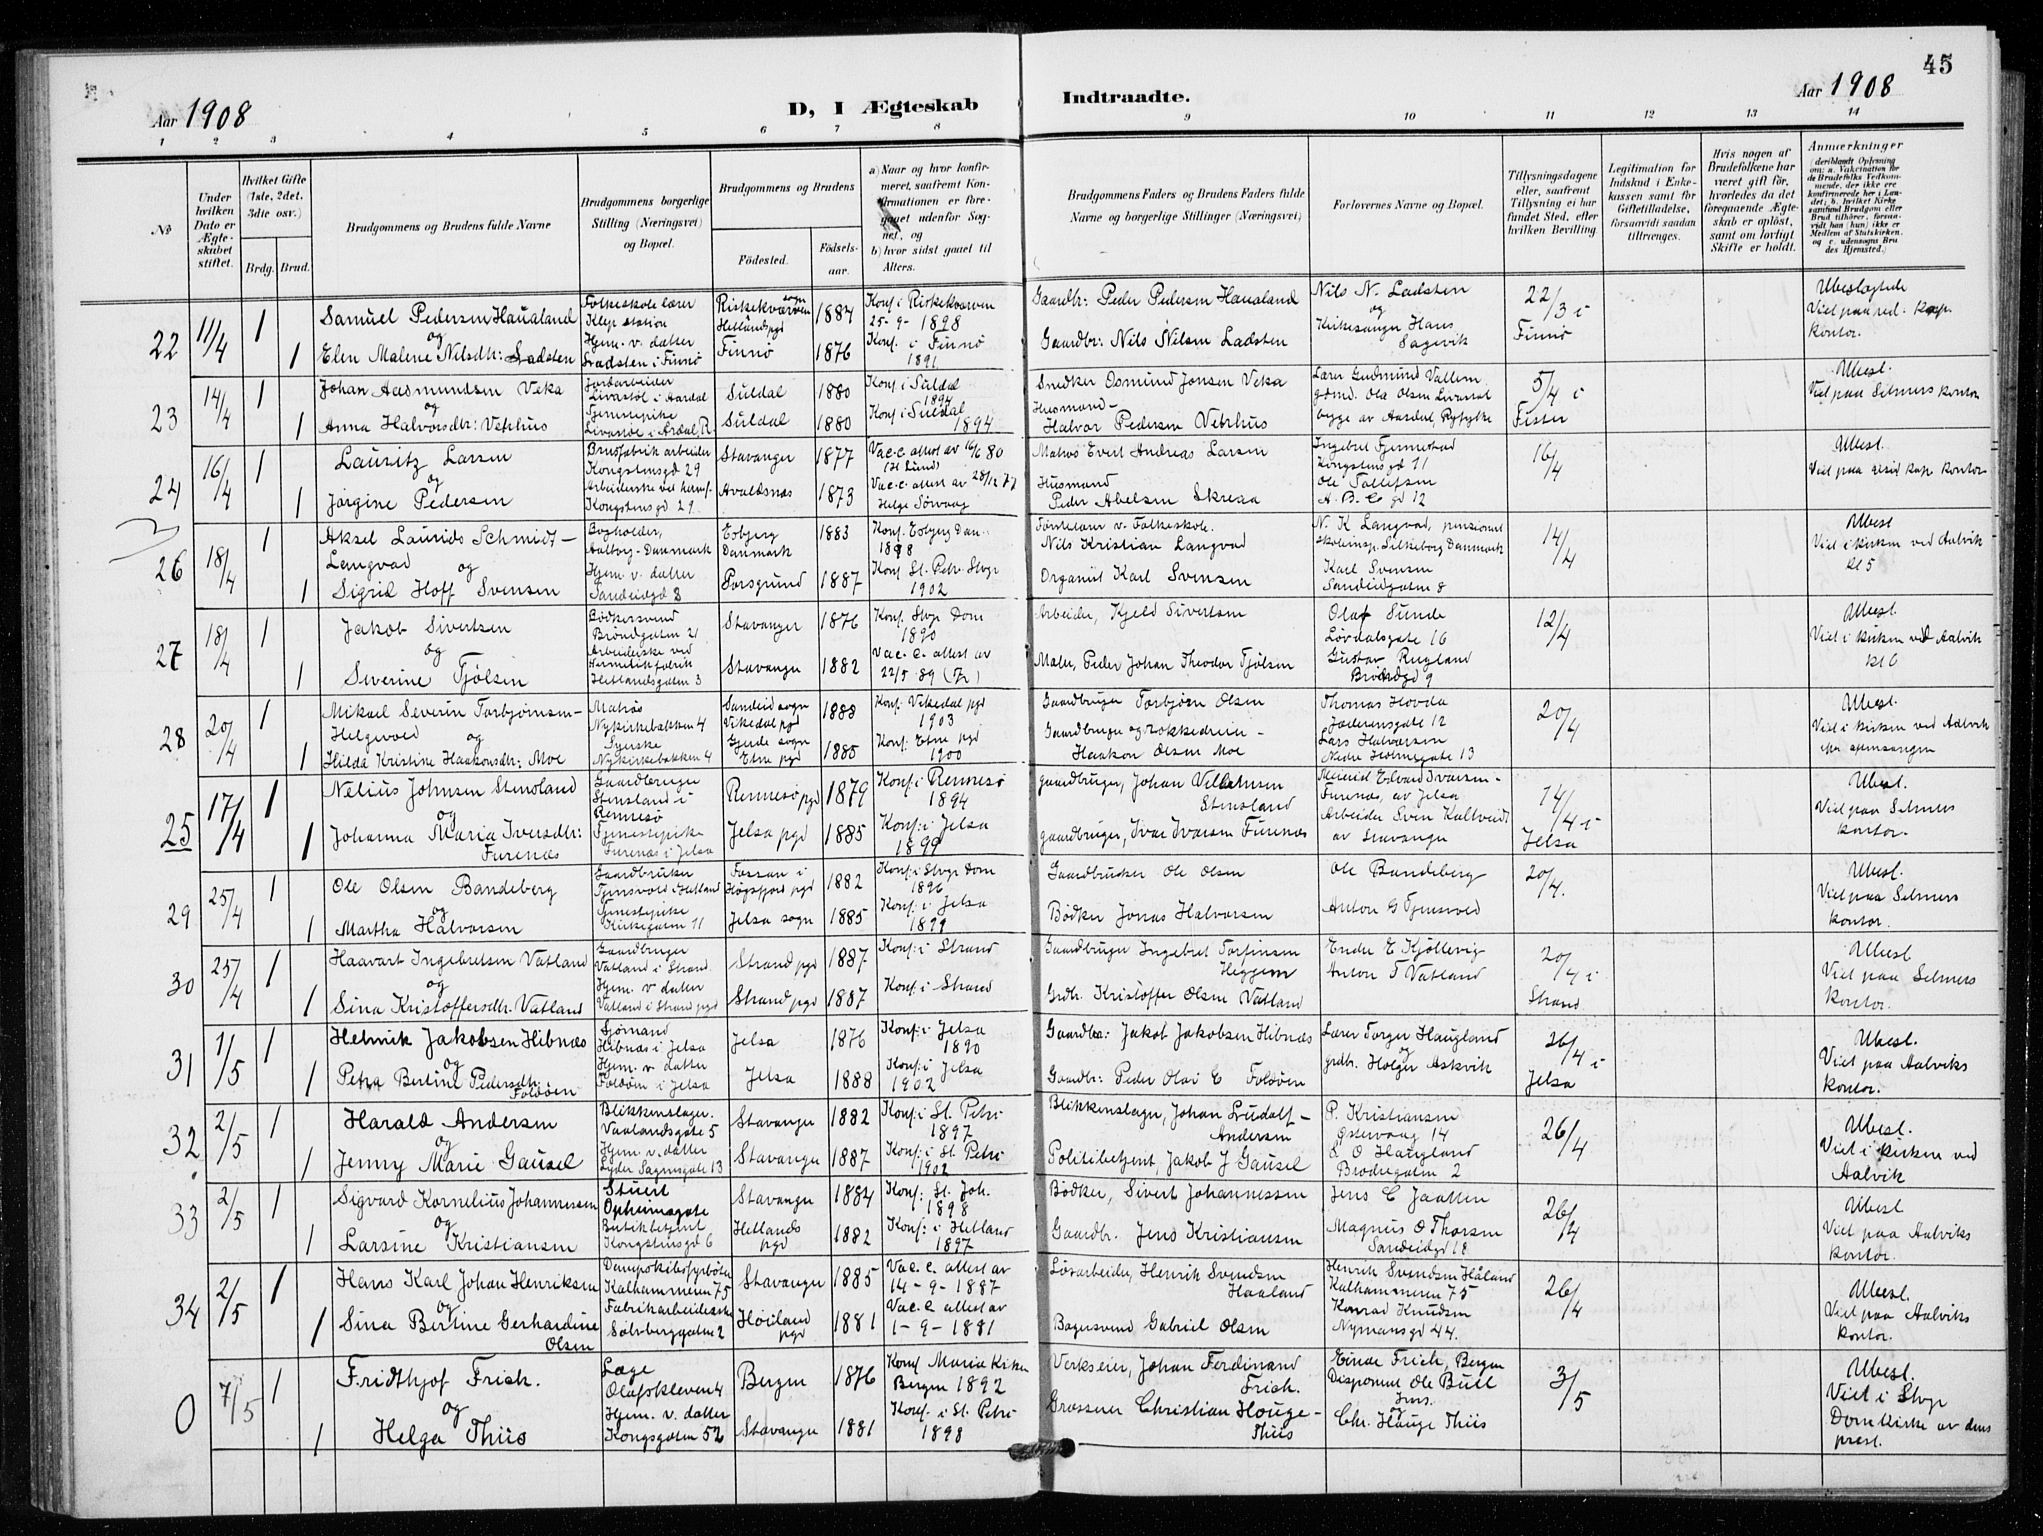 45
Aar 1908
D, I Ægteskab
Indtraadte.
Aar 1908
1 2 3 4 5 6 7 8 9 10 11 12 13 14
No
Under hvilken Dato er Ægteskabet stiftet.
Hvilket Gifte (1ste, 2det, 3dte osv.)
Brdg. Brud.
Brudgommens og Brudens fulde Navne
Brudgommens borgerlige Stilling (Næringsvei) og Bopæl.
Brudgommens og Brudens
Fødested.
Fødselsaar.
a) Naar og hvor konfirmeret, saafremt Konfirmationen er foregaaet udenfor Sognet, og
b) hvor sidst gaaet til Alters.
Brudgommens Faders og Brudens Faders fulde Navne og borgerlige Stillinger (Næringsvei)
Forlovernes Navne og Bopæl.
Tillysningsdagene eller, saafremt Tillysning ei har fundet Sted, efter hvilken Bevilling.
Legitimation for Indskud i Enkekassen samt for Giftetilladelse, forsaavidt saadan tiltrænges.
Hvis nogen af Brudefolkene har været gift før, hvorledes da det foregaaende Ægteskab er opløst, samt om lovligt Skifte er holdt.
Anmærkninger
(deriblandt Oplysning om: a. Vaccination for de Brudefolks Vedkommende, der ikke ere konfirmerede her i Landet; b. hvilket Kirkesamfund Brudgom eller Brud tilhører, forsaavidt han (hun) ikke er Medlem af Statskirken, og c. udensogns Brudes Hjemsted.)
22 11/4 1 Samuel Pedersen Haualand
Folkeskolelærer
Klep station
Hetland pgd
1884
Konf. i Riskekværven
25-9-1898
Gaardbr: Peder Pedersen Haualand
Nils N. Ladsten
og
22/3 i
Finnø
Ubeslægtede
Viet paa red. kap.
kontor.
og
1 Elen Malene Nilsdtr: Ladsten
Hjem. v. datter
Ladsten i Finnø
Finnø
1876
Konf. i Finnø
1891
Gaardbr: Nils Nilsen Ladsten
Kirkesanger Hans
Sagevik
23 14/4 1 Johan Aasmundsen Veka
Jordarbeider
Livastøl i Aardal
Suldal
1880
Konf. i Suldal
1894
Snedker Osmund Jonsen Veka
Lærer Gudmund Vallem
5/4 i
Fister
Ubesl.
Viet paa Selmers kontor
og
1 Anna Halvorsdtr: Vetrhus
Tjenestepike
Livastøl i Årdal, R.
Suldal
1880
Konf. i Suldal
1894
Husmand-
Halvor Pedersen Vetrhus
gbmd. Ola Olsen Livastøl
begge av Aardal, Ryfylke
24 16/4 1 Lauritz Larsen
Brusfabrik arbeider
Kongstensgd 29
Stavanger
1877
Vac. attest av 16/6 80
(H. Lund)
Matros Evert Andreas Larsen
Ingebret Tjemestad
Kongstensgd 11
16/4
Ubesl.
Viet paa resid kap kontor
og
1 Jørgine Pedersen
Arbeiderske ved hermf.
Kongstensgd 29
Avaldsnes
1873
Vac. attest av 28/12 77
Helge Sørvaag
Husmand
Peder Abelsen Skreaa
Ole Tollefsen
A. B. C gd 12
26 18/4 1 Aksel Laurids Schmidt-
Langvad og
Bogholder,
Aalborg-Danmark
Esbjerg
Danmark
1883
Konf. Esbjerg Dan.
1898
Førstelærer v. Folkeskole.
Nils Kristian Langvad
N. K Langvad, pensioneret
skoleinsp. Silkeborg Danmark
14/4
Ubesl
Viet i kirken ved Aalvik
kl 5
1 Sigrid Hoff Svensen
Hjem. v. datter
Sandeidgd 8
Porsgrund
1887
Konf. St. Petri Stvgr
1902
Organist Karl Svensen
Karl Svensen
Sandeidgaten 8
27 18/4 1 Jakob Sivertsen
Bødkersvend
Brøndgaten 21
Stavanger
1876
Konf. Stvgr Dom
1890
Arbeider, Kjeld Sivertsen
Olaf Sunde
Løvdalsgate 16
12/4
Ubesl.
Viet i kirken ved Aalvik
kl 6
og
1 Severine Tjølsen
Arbeiderske ved
Hermetikfabrik
Hetlandsgaten 3
Stavanger
1882
Vac. attest av
22/5 89
Maler, Peder Johan Theodor Tjølsen
Gustav Rugland
Brøndgd 9
28 20/4 1 Mikael Severin Torbjørnsen-
Helgevold og
Matros
Nykirkebakken 4
Sandeid sogn
Vikedal pgd
1883
Konf: Vikedal pgd
1903
Gaardbruger Torbjørn Olsen
Thomas Hovda
Jæderensgate 12
20/4
Ubesl.
Viet i kirken ved Aalvik
efter aftensangen
1 Hilda Kristine Haakonsdtr: Moe
Syerske
Nykirkebakken 4
Gjerde sogn
Etne pgd
1885
Konf: Etne pgd
1900
Gaardbruger og rokkedreier-
Haakon Olsen Moe
Lars Halvorsen
Nedre Holmegate 13
25 17/4 1 Nelius Johnsen Stensland
Gaardbruger
Stensland i
Rennesø
Rennesø pgd
1879
Konf. i Rennesø
1894
gaardbruger, Johan Villumsen
Stensland
Meierist Edvard Ivarsen-
Furenæs, av Jelsa
14/4 i
Jelsa
Ubesl.
Viet paa Selmers
kontor.
og
1 Johanna Maria Iversdtr:
Furenæs
Tjenestepike
Furenæs i Jelsa
Jelsa pgd
1885
Konf: i Jelsa
1899
gaardbruger, Ivar Ivarsen Furenæs
Arbeider Sven Kaltveidt
av Stavanger
29 25/4 1 Ole Olsen Bandeberg
Gaardbruker
Tjensvold i Hetland
Fossan i
Høgsfjord pgd
1882
Konf: i Stvgr Dom
1896
Gaardbruker Ole Olsen
Ole Bandeberg
20/4.
Ubesl.
Viet paa Selmers
kontor.
og
1 Martha Halvorsen
Tjenestepike
Kirkegaten 11
Jelsa sogn
1885
Konf: i Jelsa
1899
Bødker Jonas Halvorsen
Anton G Tjensvold
30 25/4 1 Haavart Ingebretsen Vatland
Gaardbruger
Vatland i Strand
Strand pgd
1887
Konf: i Strand
Gaardbruger Ingebret Torfinsen
Heggem
Endre E Kjøllevig
20/4 i
Strand
Ubesl
Viet paa Selmers
kontor.
og
1 Sina Kristoffersdtr. Vatland
Hjem. v datter
Vatland i Strand pgd
Strand pgd
1887
Konf: i Strand
Grdbr. Kristoffer Olsen Vatland
Anton T Vatland
31 1/5 1 Helmik Jakobsen Hibnæs
Sjømand
Hibnæs i Jelsa
Jelsa
1876
Konf: i Jelsa
1890
Gaardbr: Jakob Jakobsen Hibnæs
Lærer Torger Haugland
og
26/4 i
Jelsa
Ubesl.
Viet paa Aalviks
kontor.
og
1 Petra Bertine Pedersdtr.
Foldøen
Hjem. v. datter
Foldøen i Jelsa
Jelsa
1888
Konf: i Jelsa
1902
Gaardbr: Peder Olai E Foldøen
grdbr. Holger Askvik
32 2/5 1 Harald Andersen
Blikkenslager.
Vaalandsgate 5
Stavanger
1882
Konf: i St. Petri
1897
Blikkenslager, Johan Ludolf-
Andersen
P. Kristiansen
Østervaag 14
26/4
Ubesl.
Viet i kirken ved
Aalvik
og
1 Jenny Marie Gausel
Hjem. v. datter
Lyder Sagensgate 13
Stavanger
1887
Konf: i St. Petri
1902
Politibetjent, Jakob J Gausel
L O Haugland
Brødregaten 2
33 2/5 1 Sigvard Kornelius Johannessen
Stuert
Opheimsgate
Stavanger
1884
Konf: St. Joh.
1898
Bødker, Sivert Johannessen
Jens C Jaatten
26/4
Ubesl
Viet paa Aalviks
kontor.
og
1 Larsine Kristiansen
Butikbetjent
Kongstensgd 6
Hetlands
pgd
1882
Konf: i Hetland
1897
Gaardbr. Jens Kristiansen
Magnus O Thorsen
Sandeidgd 18
34 2/5 1 Hans Karl Johan Henriksen
Dampskibsfyrbøter
Kalhammeren 75
Stavanger
1885
Vac. attest av
14-9-1887
Løsarbeider, Henrik Svendsen
Haaland
Henrik Svendsen Håland
Kalhammeren 75
26/4
Ubesl.
Viet paa Aalviks
kontor.
og
1 Sina Bertine Gerhardine
Olsen
Fabrikarbeiderske
Sølvberggaten 2
Høiland
pgd
1881
Vac. attest av
1-9-1881
Bagersvend Gabriel Olsen
Konrad Knudsen
Nymansgd 44.
0 7/5 1 Fridthjof Frich.
Læge
Olafskleven 4
Bergen
1876
Konf Maria Kirken
Bergen 1892
Verkseier, Johan Ferdinand
Frich.
Einde Frich, Bergen
Disponent Ole Bull
3/5
Ubesl.
Viet i Stvgr
Domkirke av dens
prest.
og
1 Helga Thiis
Hjem. v. datter
Kongsgaten 52
Stavanger
1881
Konf. i St. Petri
1898
Grosserer Christian Houge-
Thiis
og
Chr. Houge Thiis